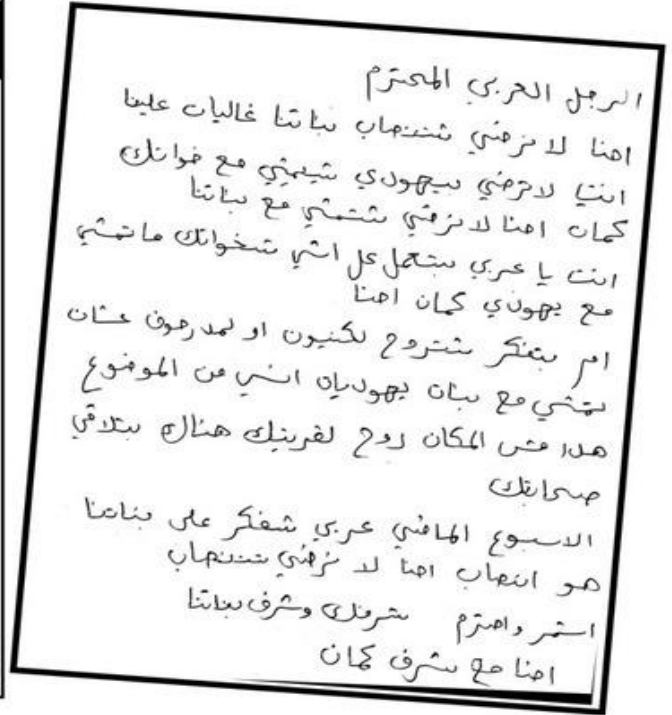 الرجل العربي المحترم
احنا لا نرضي تتنصاب بناتنا غاليات علينا
انت لا ترضي بيهودي شيمشي مع خواتك
كمان احنا لا نرضي شتمشي مع بناتنا
انت يا عربي بتعمل كل اشي شخواتك ما تمشي
مع يهودي كمان احنا
ام بتفكر شتروح لكنيون او لمدرحوف عشان
تمشي مع بنات يهوديات انسي من الموضوع
هدا مش المكان روح لقريتك هناك بتلاقي
صحابتك
الاسبوع الماضي عربي شفكر على بناتنا
هو انصاب احنا لا نرضي تتنصاب
استمر واحترم شرفك وشرف بناتنا
احنا مع شرف كمان